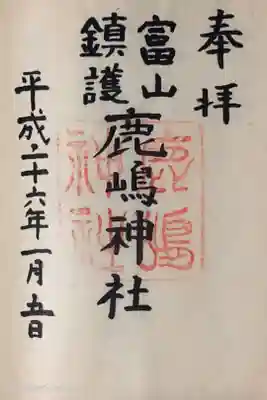 奉拝
富山
鎮護
鹿嶋神社
平成二十六年一月五日
鹿嶋
神社